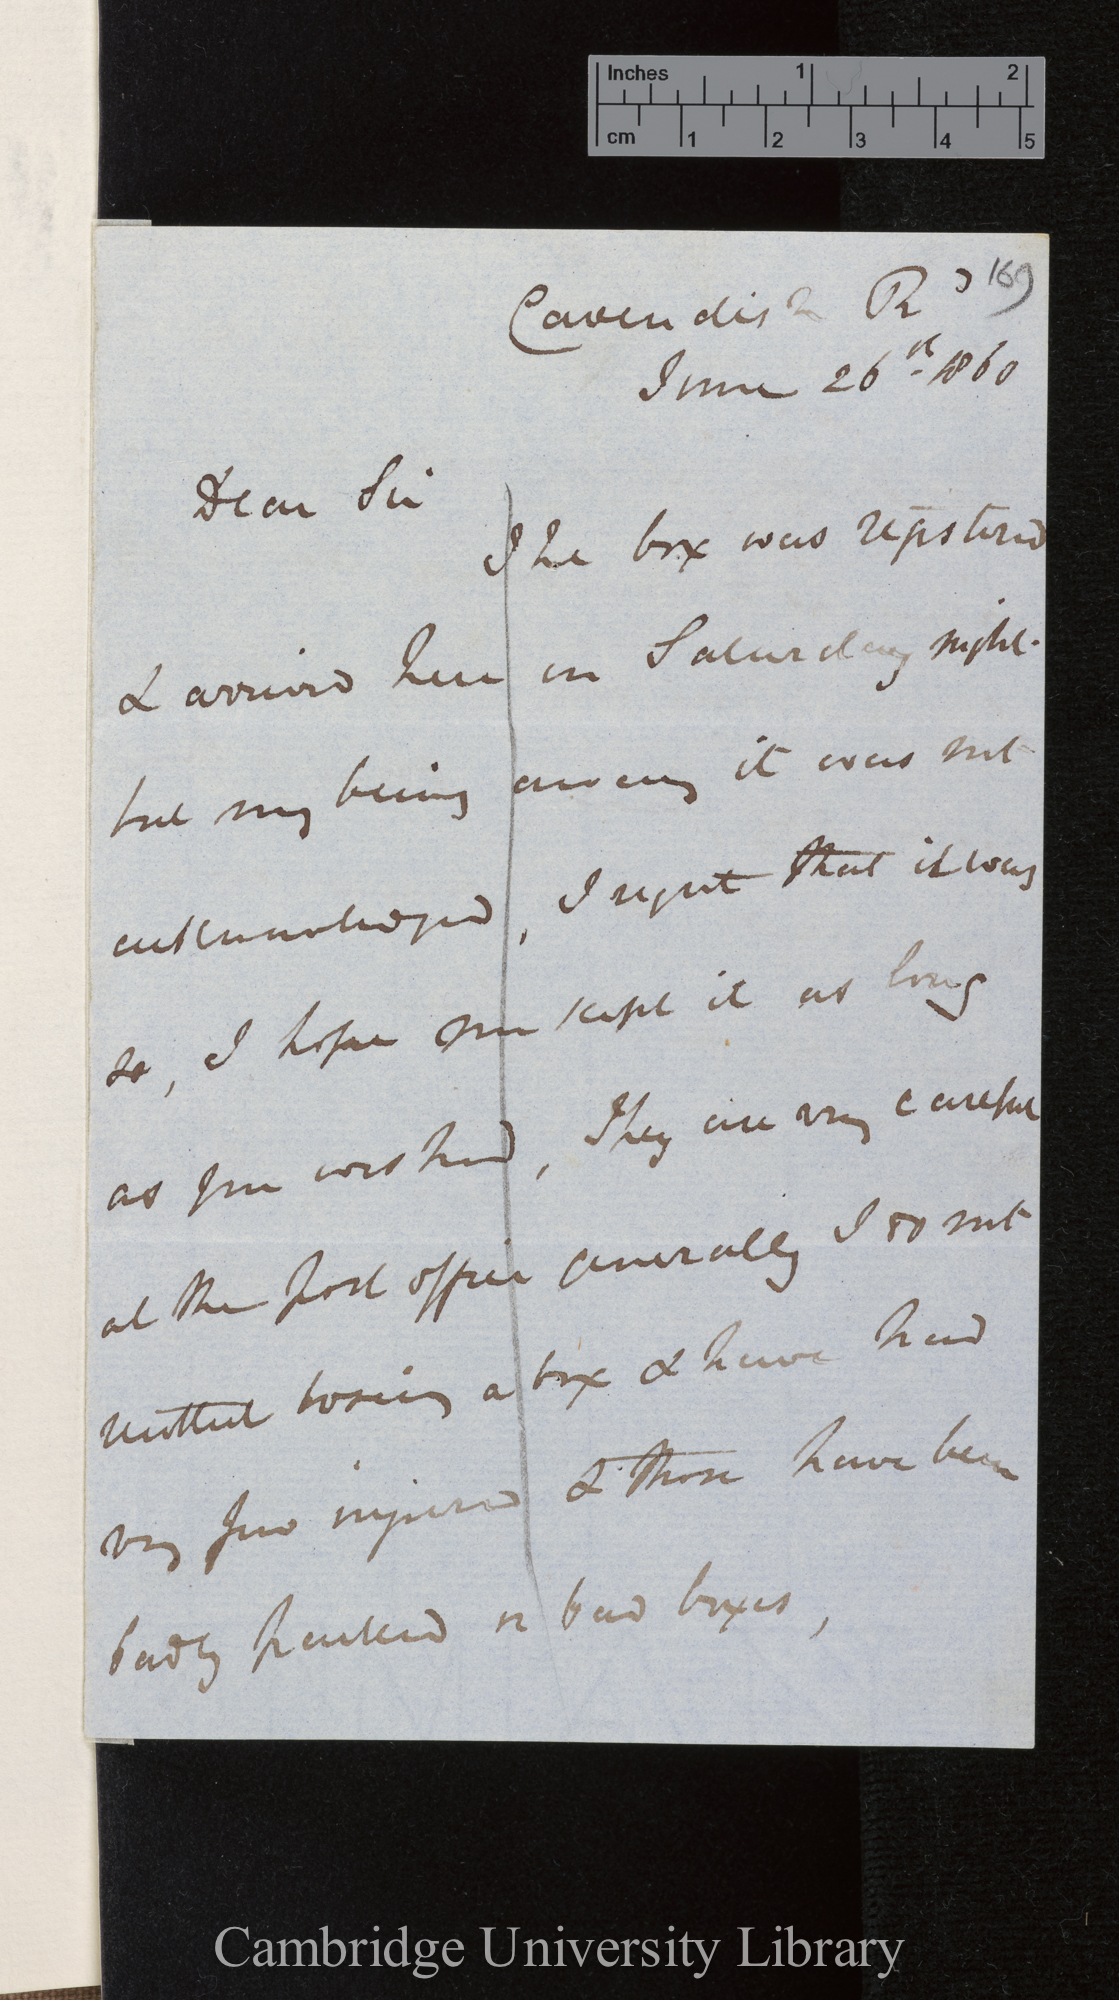 Inches 1 2
cm 1 2 3 4 5
169
Cavendish Rd
June 26th. 1860
Dear Sir
The box was registered
& arrived here on Saturday night.
but my being away it was not
acknowledged, I regret that it was
so, I hope you kept it as long
as you wished, They are very careful
at the post office generally I do not
recollect losing a box & have had
very few injured & those have been
badly packed or bad boxes,
Cambridge University Library